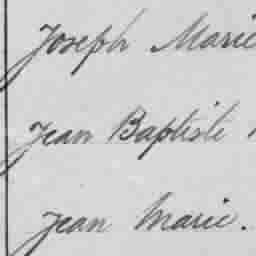 Joseph Marie
Jean Baptiste
Jean Marie.